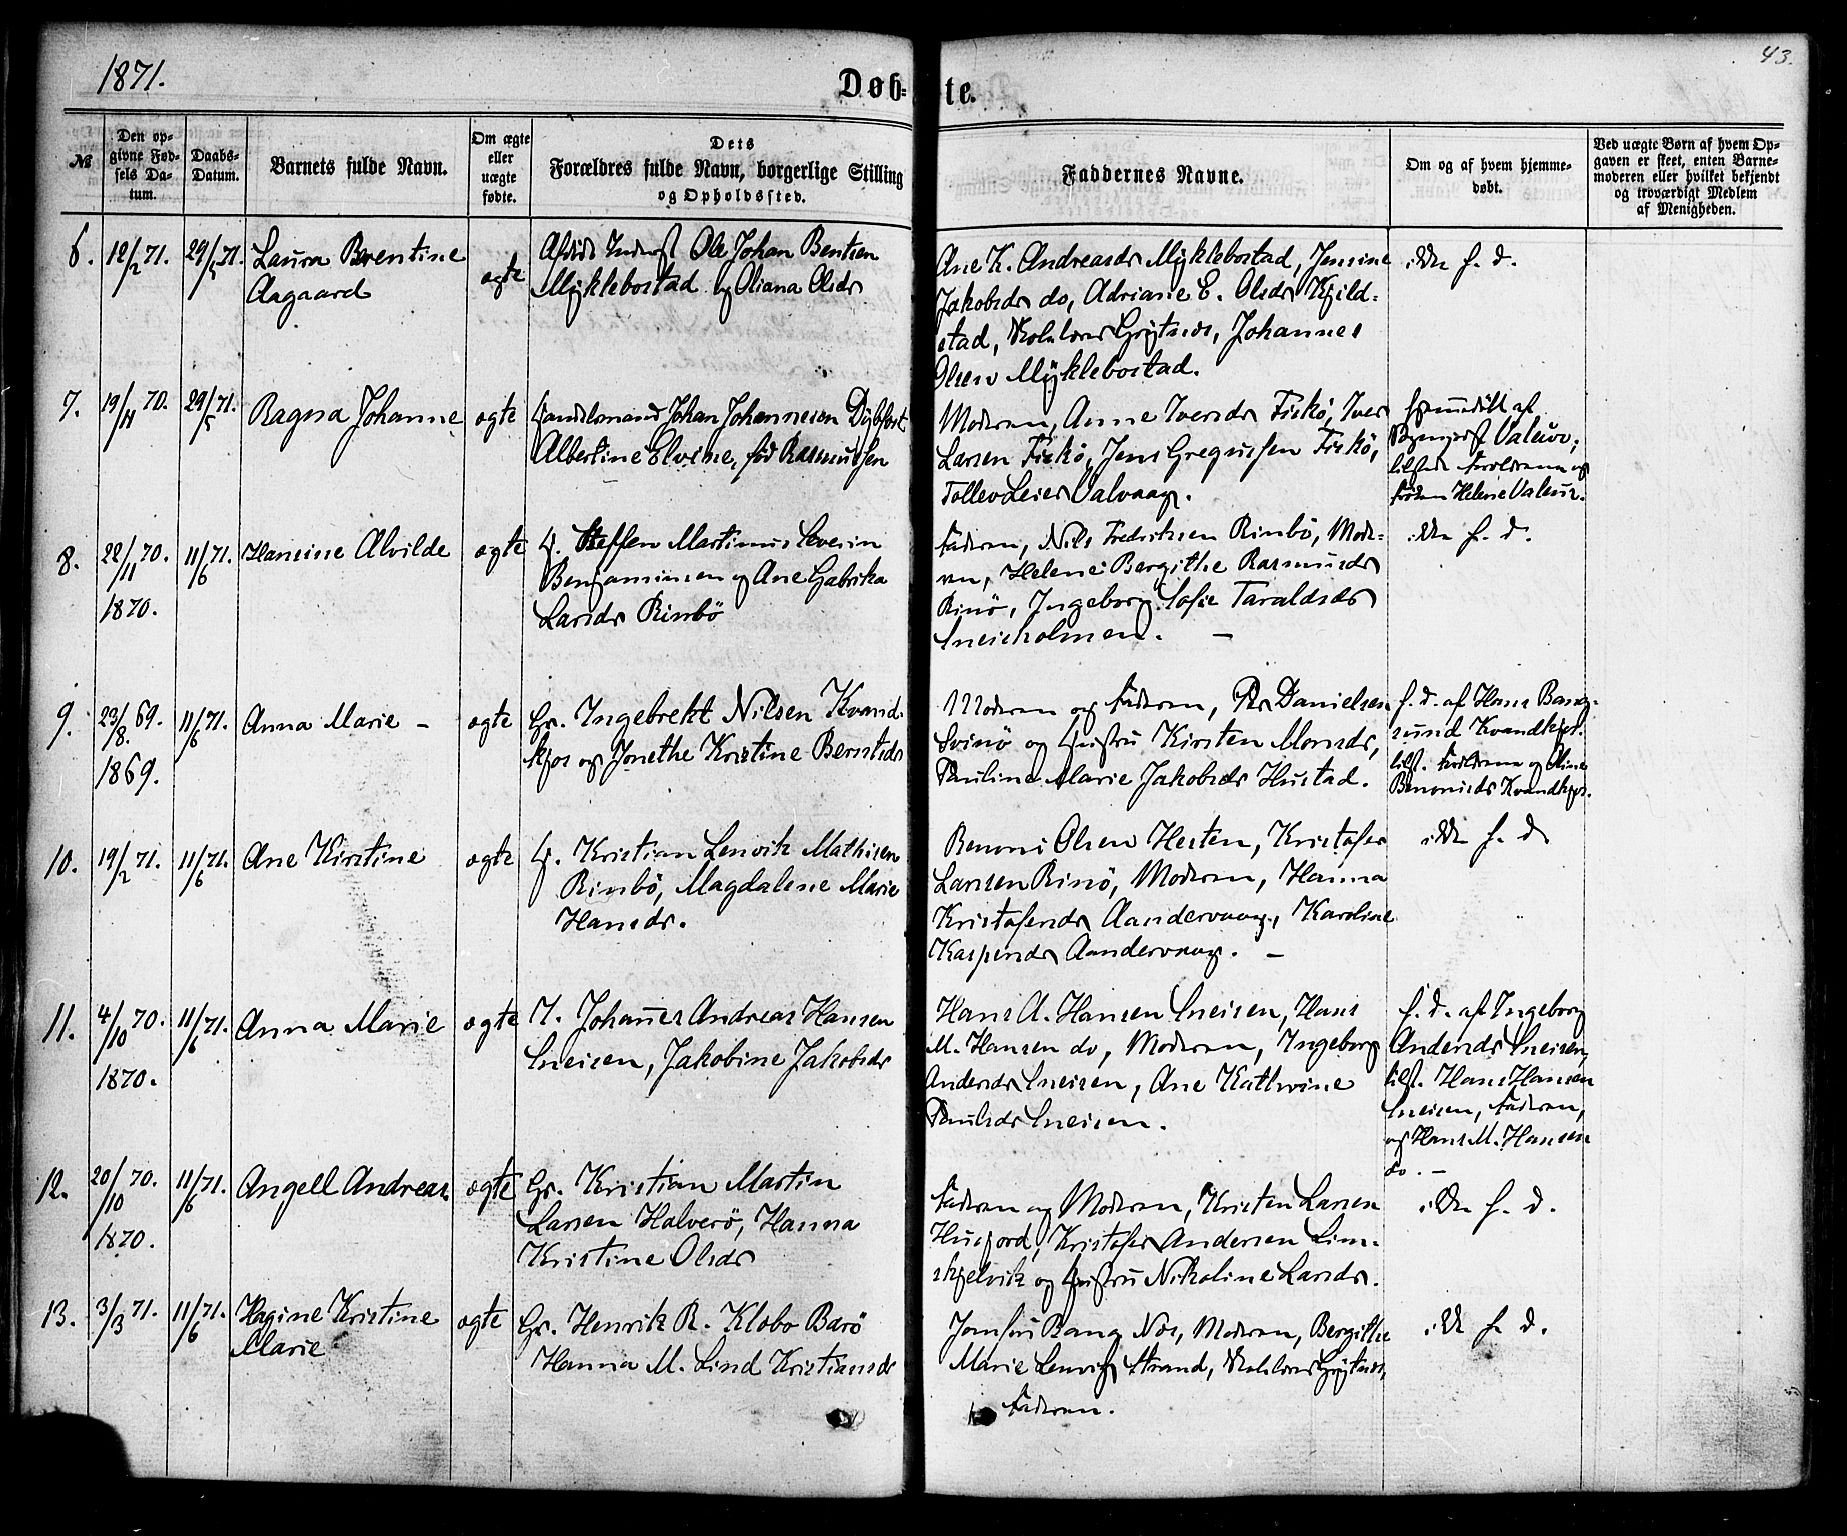 1871.
Døb-
te.
43.
№
Den op-
givne Fød-
sels Da-
tum.
Daabs-
Datum.
Barnets fulde Navn.
Om ægte
eller
uægte
fødte.
Dets
Forældres fulde Navn, borgerlige Stilling
og Opholdssted.
Faddernes Navne.
Om og af hvem hjemme-
døbt.
Ved uægte Børn af hvem Op-
gaven er skeet, enten Barne-
moderen eller hvilket bekjendt
og troværdigt Medlem
af Menigheden.
6. 12/2 71. 29/5 71. Laura Berentine
Aagaard
ægte
Ole Johan Bentsen
Myklebostad og Oliana Olsdr
Ane K. Andreasdr Myklebostad, Jensine
Jakobsdr do, Adriane E. Olsdr Kjeld-
stad, Johannes
Olsen Myklebostad.
ikke h. d.
7. 19/11 70. 29/5 71. Ragna Johanne
ægte
Handelsmand Johan Johannesen Dybfest
Albertine Elvine, fød Rasmussen
Moderen, Anne Iversdr Fiskø, Iver
Larsen Fiskø, Jens Gregussen Fiskø,
Valvaag.
Hjemmedøbt af
Valeur,
tilstede Forældrene og
Frøken Helene Valeur.
8. 22/11 70. 11/6 71. Hansine Alvilde
1870.
ægte
H. Steffen Martinus Severin
Benjaminsen og Ane Gabrika
Larsdr Rinbø
Faderen, Nils Fredriksen Rinbø, Mode-
ren, Helene Bergithe Rasmusdr
Rinø, Ingeborg Sofie Taraldsdr
Sneisholmen. —
ikke h. d.
9. 23/8 69. 11/6 71. Anna Marie —
1869.
ægte
Gr. Ingebrekt Nilsen Kvand-
kjos og Jonethe Kristine Berntsdr
Moderen og Faderen, Per Danielsen
Svinø og Hustru Kirsten Monsdr,
Pauline Marie Jakobsdr Hustad.
h. d. af Hans Bang-
sund Kvandkjos.
tilst. Forældrene og Oline
Benonisdr Kvandkjos.
10. 19/2 71. 11/6 71. Ane Kirstine
ægte
H. Kristian Lenvik Mathisen
Rinbø, Magdalene Marie
Hansdr.
Benoni Olsen Hesten, Kristofer
Larsen Rinø, Moderen, Hanna
Kristofersdr Aandervaag, Karoline
Kaspersdr Aandervaag. —
ikke h. d
11. 4/10 70. 11/6 71. Anna Marie
1870.
ægte
I. Johannes Andreas Hansen
Sneisen, Jakobine Jakobsdr
Hans A. Hansen Sneisen, Hans
M. Hansen do, Moderen, Ingeborg
Andersdr Sneisen, Ane Kathrine
Paulsdr Sneisen.
h. d. af Ingeborg
Andersdr Sneisen,
tilst. Hans Hansen
Sneisen, Faderen,
og Hans M. Hansen
do. —
12. 20/10 70. 11/6 71. Angell Andreas
1870.
ægte
Gr. Kristian Martin
Larsen Halverø, Hanna
Kristine Olsdr
Faderen og Moderen, Kristen Larsen
Husfjord, Kristofer Andersen Lim-
skjelvik og Hustru Nikoline Larsdr.
ikke h. d.
13. 3/3 71. 11/6 71. Hagine Kristine
Marie
ægte
Gr. Henrik R. Klobo Barø
Hanna M. Lind Kristiansdr
Jomfru Bang Nos, Moderen, Bergithe
Marie Lenvig Strand,
Faderen.
ikke h. d.